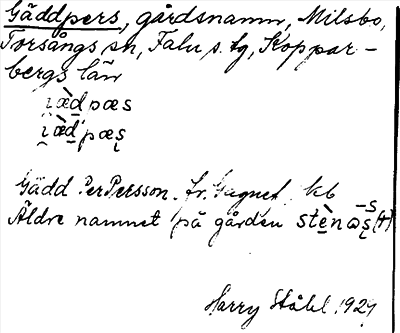 Gäddpers, gårdsnamn, Milsbo,
Torsångs sn, Falu s. lg, Koppar-
bergs län
i̯æ̀d̲pæs
i̯æ̀d̲pæs̨
Gädd Per Persson. fr. Gagnef.
Äldre namnet på gården
Harry Ståhl 1929